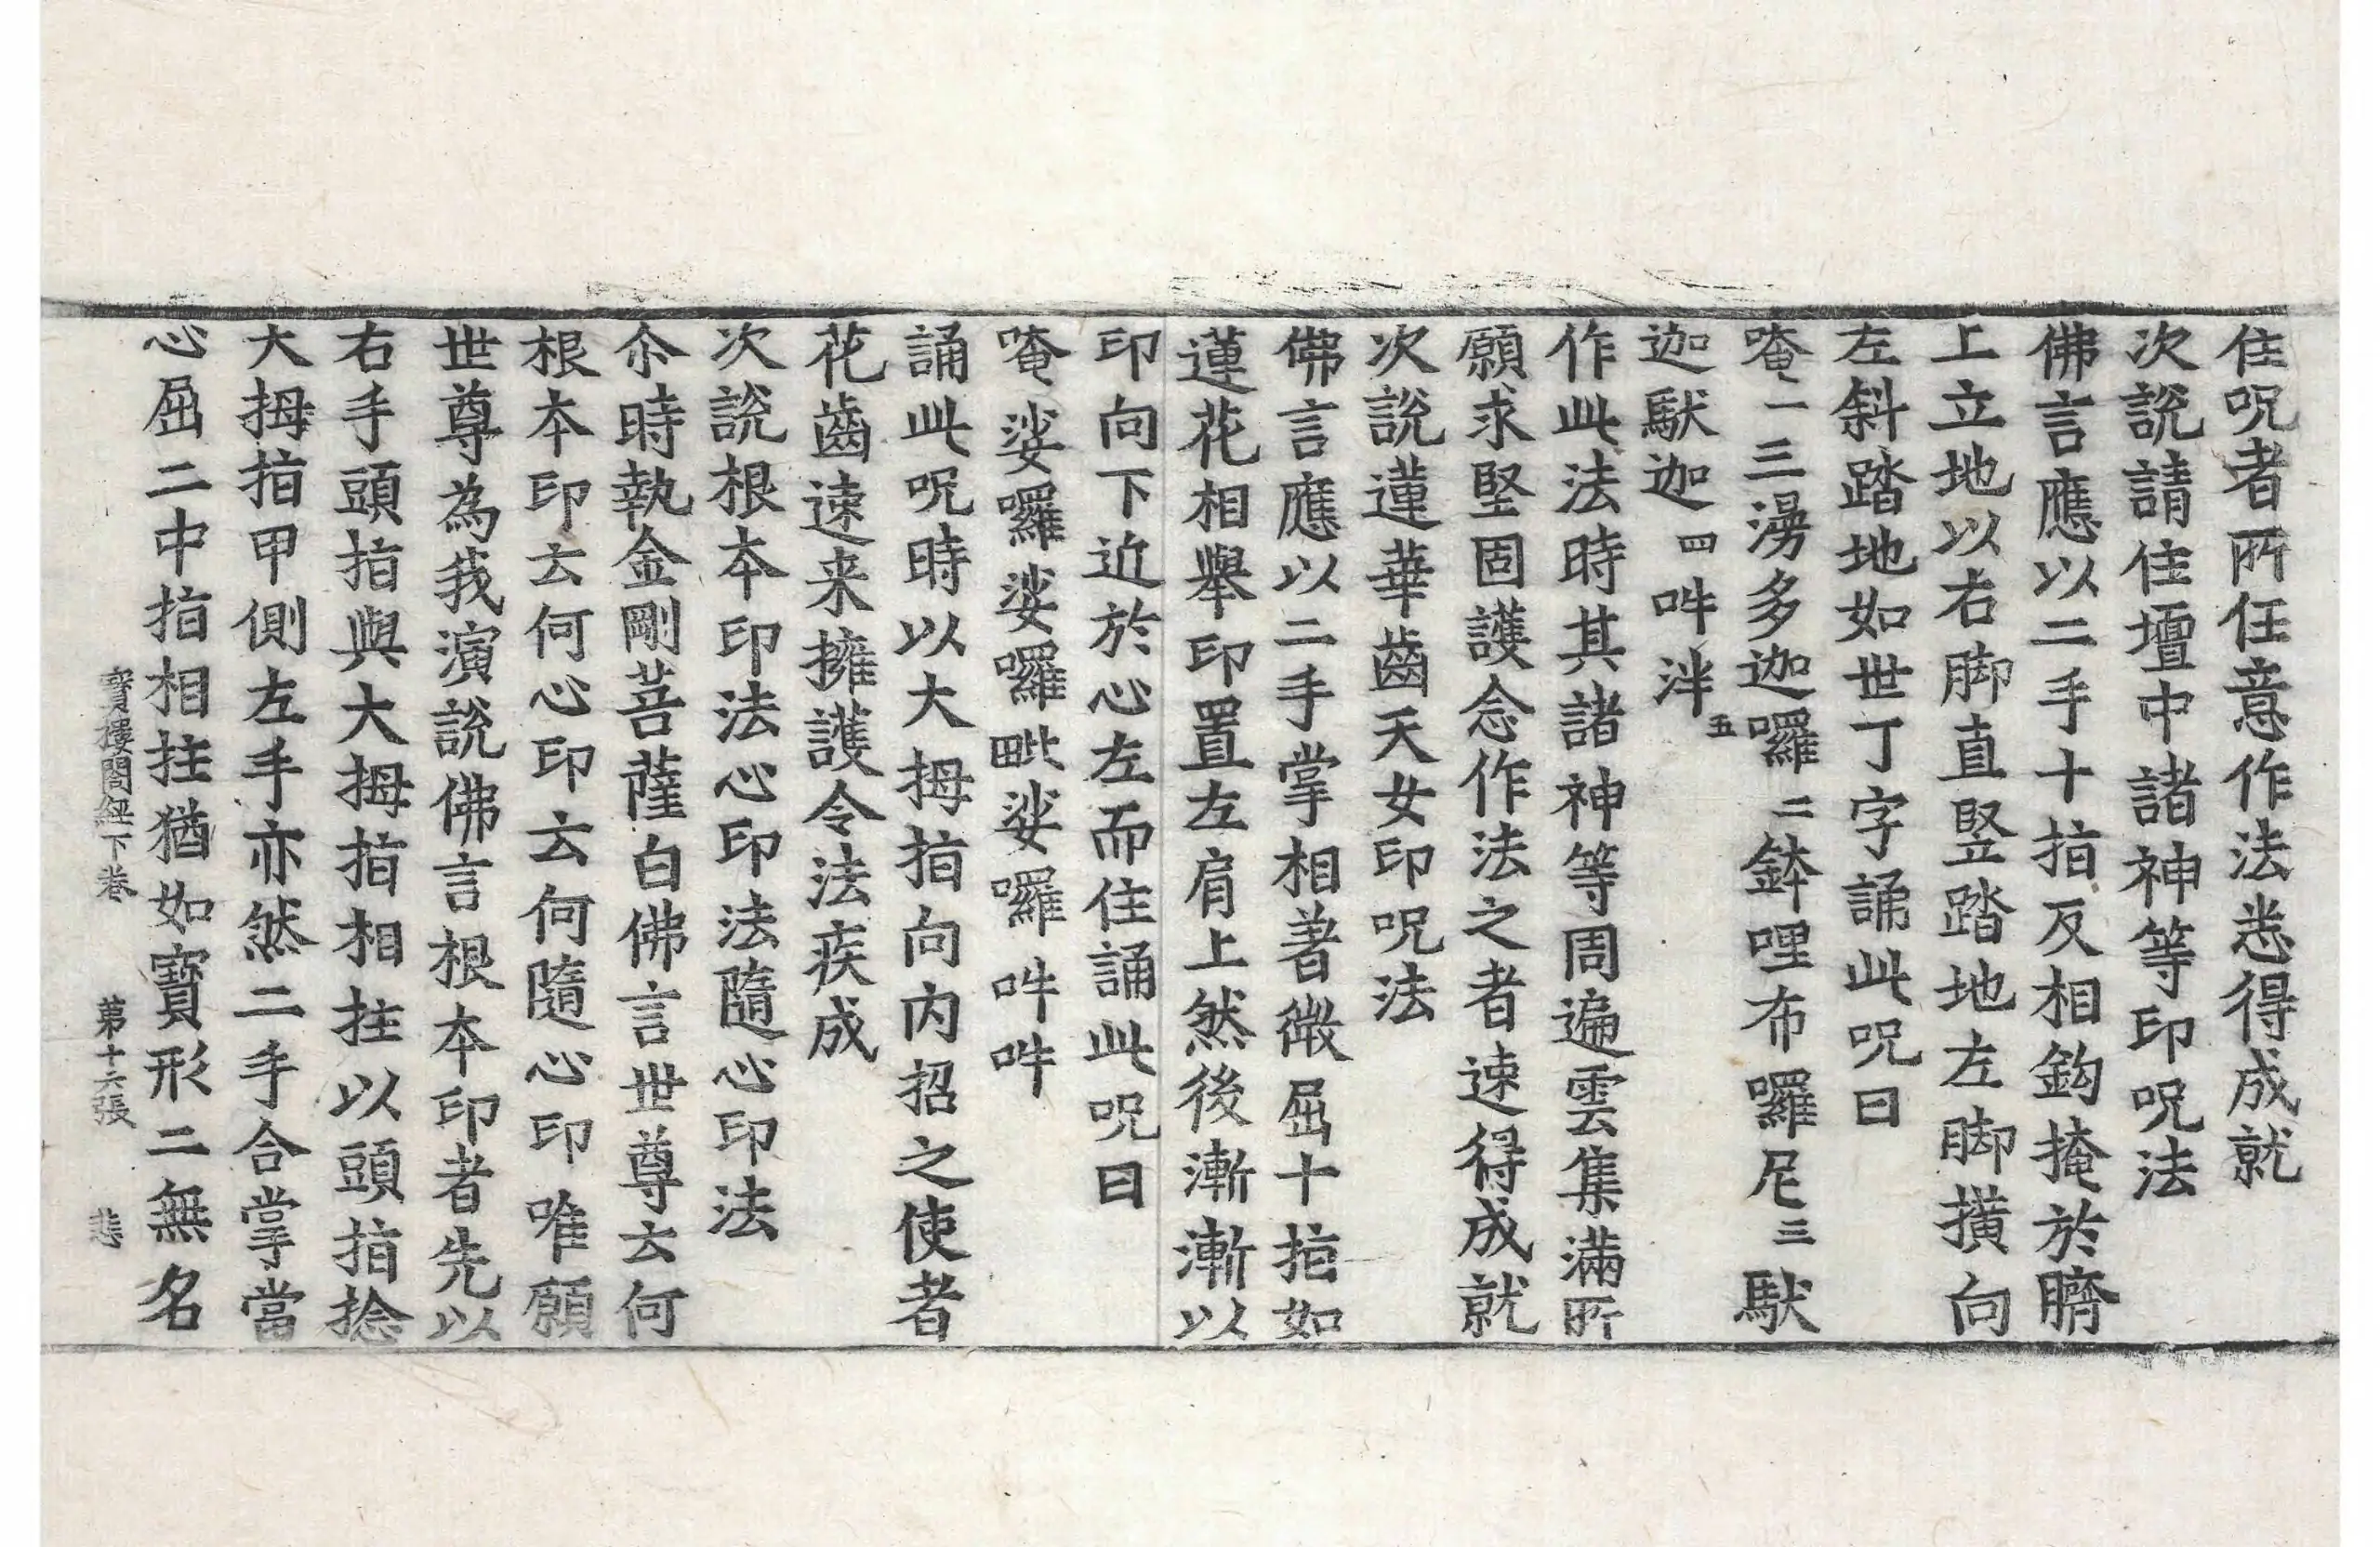 住呪者所任意作法悉得成就
次說請住壇中諸神等印呪法
佛言應以二手十指反相鈎掩於臍
上立地以右脚直竪踏地左脚撗向
左斜踏地如世丁字誦此呪曰
唵一三湧多迦囉二鉢哩布囉尼三馱
迦馱迦四吽泮五
作此法時其諸神等周遍雲集滿所
願求堅固護念作法之者速得成就
次說蓮華齒天女印呪法
佛言應以二手掌相著微屈十指如
蓮花相舉印置左肩上然後漸漸以
印向下近於心左而住誦此呪曰
唵娑囉娑囉毗娑囉吽吽
誦此呪時以大拇指向内招之使者
花齒速来擁護令法疾成
次說根本印法心印法隨心印法
尒時執金剛菩薩白佛言世尊云何
根本印云何心印云何隨心印唯願
世尊為我演說佛言根本印者先以
右手頭指與大拇指相拄以頭指捻
大拇指甲側左手亦然二手合掌當
心屈二中指相拄猶如寶形二無名
寶樓閣經下卷 第十六張 悲